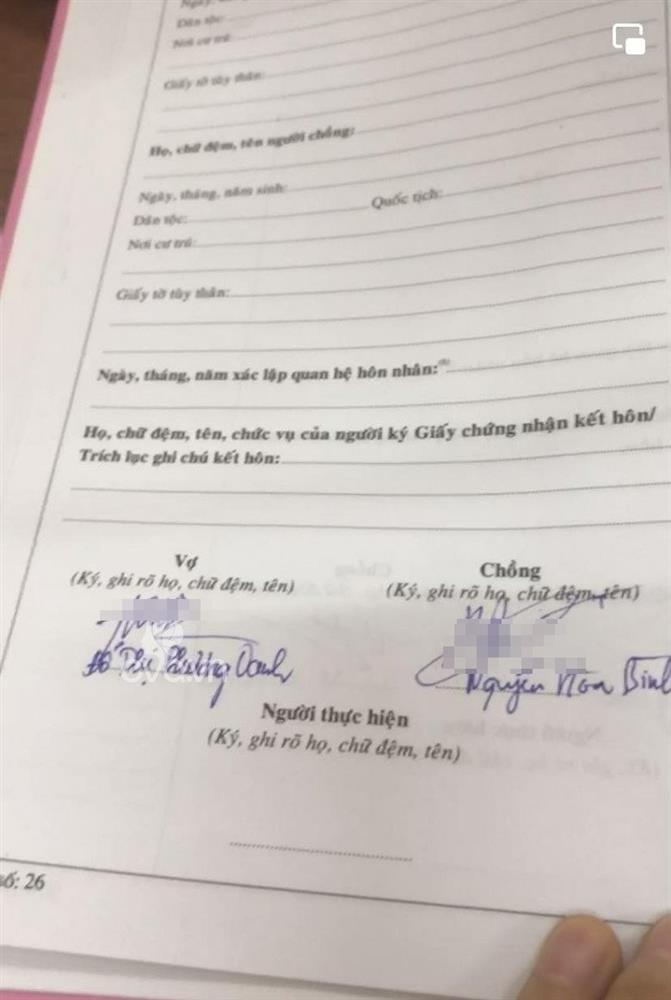 Ngày,
Dân tộc:
Nơi cư trú:
Giấy tờ tùy thân:
Họ, chữ đệm, tên người chồng:
Ngày, tháng, năm sinh:
Dân tộc: Quốc tịch:
Nơi cư trú:
Giấy tờ tùy thân:
Ngày, tháng, năm xác lập quan hệ hôn nhân:
Họ, chữ đệm, tên, chức vụ của người ký Giấy chứng nhận kết hôn/
Trích lục ghi chú kết hôn:
Vợ Chồng
(Ký, ghi rõ họ, chữ đệm, tên) (Ký, ghi rõ họ, chữ đệm, tên)
Đỗ Thị Phương Oanh Nguyễn Hòa Bình
Người thực hiện
(Ký, ghi rõ họ, chữ đệm, tên)
số: 26